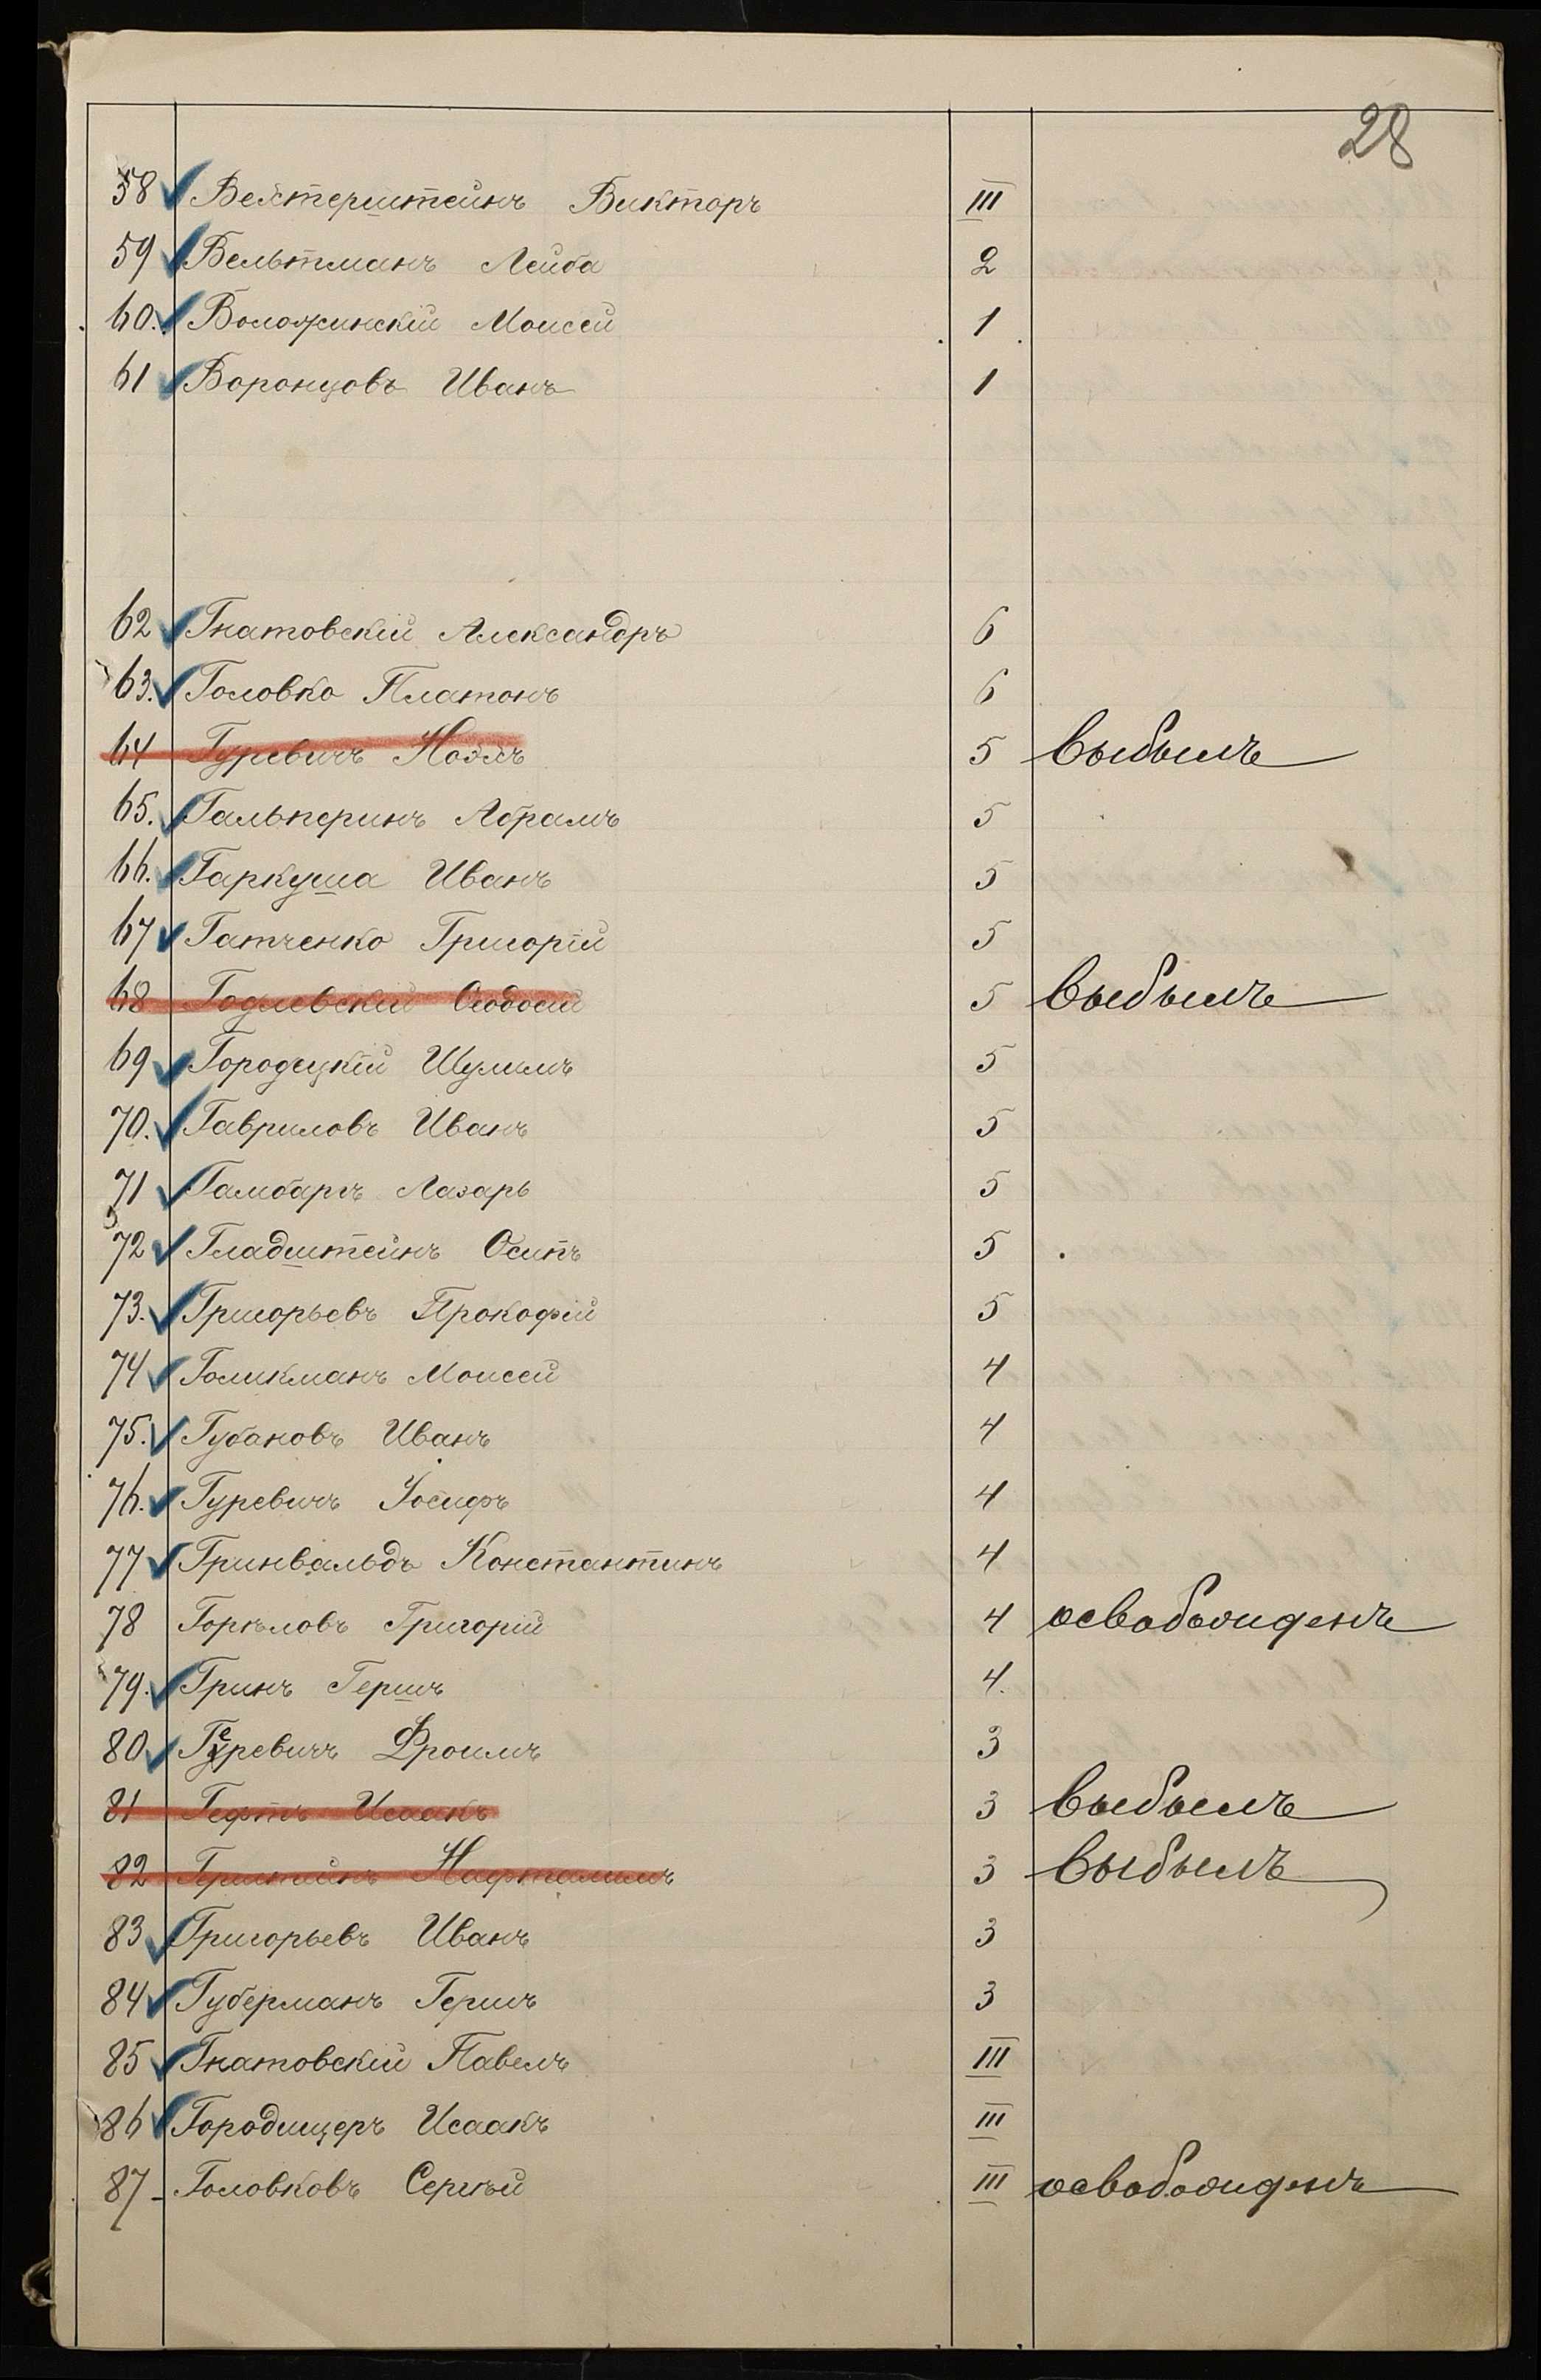 28
58 Вехтерштейнъ Викторъ III
59 Вельтманъ Лейба 2
60. Воложинскій Моисей 1
61 Воронцовъ Иванъ 1
62 Гнатовскій Александръ 6
63. Головко Платонъ 6
64 Гуревичъ Ноэмъ 5 выбылъ
65. Гальперинъ Абрамъ 5
66. Гаркуша Иванъ 5
67 Гатченко Григорій 5
68 Годлевскій Ѳеодосій 5 выбылъ
69 Городецкій Шулимъ 5
70. Гавриловъ Иванъ 5
71 Гамбаргъ Лазарь 5
72 Гладштейнъ Осипъ 5
73. Григорьевъ Прокофій 5
74 Голикманъ Моисей 4
75. Губановъ Иванъ 4
76. Гуревичъ Іосифъ 4
77 Гринвальдъ Константинъ 4
78 Горѣловъ Григорій 4 освобожденъ
79. Гринъ Гершъ 4.
80 Геревичъ Фроимъ 3
81 Гефтъ Исаакъ 3 выбылъ
82 Герштейнъ Нафталимъ 3 выбылъ
83 Григорьевъ Иванъ 3
84 Губерманъ Гершъ 3
85 Гнатовскій Павелъ III
86 Городищеръ Исаакъ III
87 Головковъ Сергѣй III освобожденъ